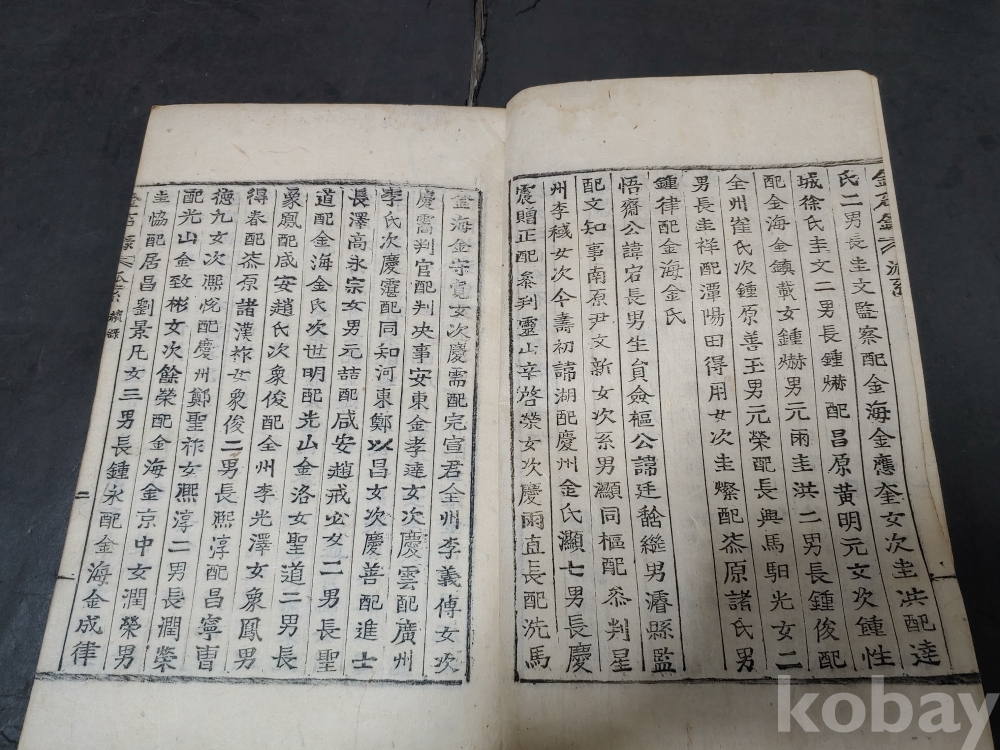 氏二男長圭文監察配金海金應奎女次圭洪配達
城徐氏圭文二男長鍾爀配昌原黃明元女次鍾性
配金海金鎮載女鍾爀男元雨圭洪二男長鍾俊配
全州崔氏次鍾原善玉男元榮配長興馬馹光女二
男長圭祥配潭陽田得用女次圭燦配泰原諸氏男
鍾律配金海金氏
悟齋公諱宕長男生員僉樞公諱廷馠繼男濬縣監
配文知事南原尹文新女次系男灝同樞配叅判星
州李穢女次今壽初諱湖配慶州金氏灝七男長慶
震贈正配叅判靈山辛啓榮女次慶雨直長配洗馬
金海金守寬女次慶需配完宣君全州李義傅女次
慶霱判官配判决事安東金孝達女次慶雲配廣州
李氏次慶霔配同知河東鄭以昌女次慶善配進士
長澤高永宗女男元喆配咸安趙戒必女二男長聖
道配金海金氏次世明配光山金洛女聖道二男長
象鳳配咸安趙氏次象俊配全州李光澤女象鳳男
得春配泰原諸漢祚女象俊二男長熙淳配昌寧曺
德九女次熙悅配慶州鄭聖祚女熙淳二男長潤榮
配光山金致彬女次餘榮配金海金京中女潤榮男
圭協配居昌劉景凡女三男長鍾永配金海金成律
二
kobay